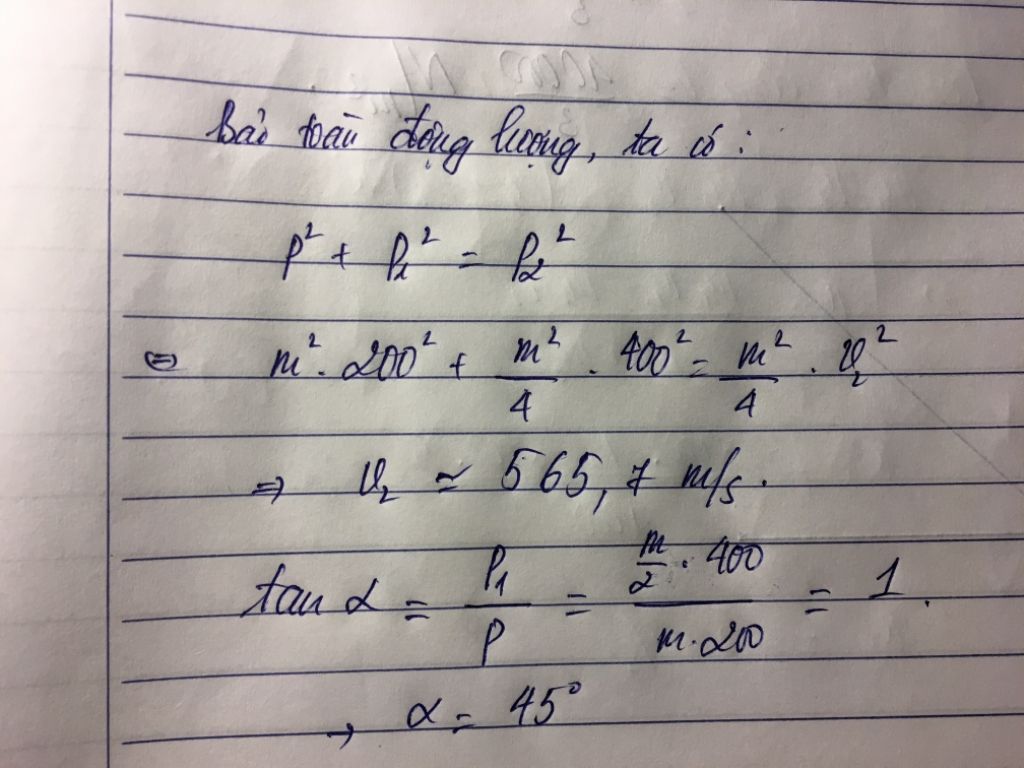 Bảo toàn động lượng, ta có :
p² + p₁² = p₂²
⇔ m² . 200² + m²/4 . 400² = m²/4 . v₂²
⇒ v₂ ≃ 565,7 m/s.
tan α = p₁/p = (m/2 . 400)/(m.200) = 1.
→ α = 45°